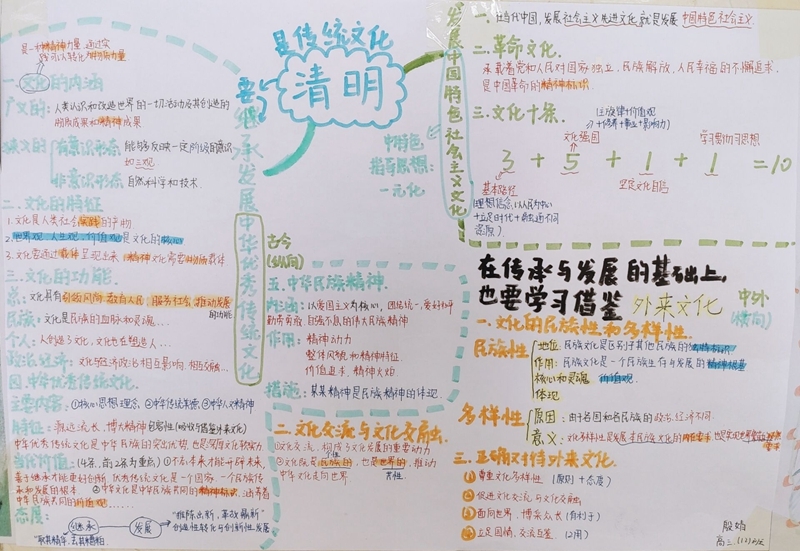 是传统文化
清明
要
继承发展中华优秀传统文化
是一种精神力量,通过实
践可以转化为物质力量
一.文化的内涵
广义的:人类认识和改造世界的一切活动及其创造的
物质成果和精神成果
狭义的
有意识形态 能够反映一定阶级的意识
如三观
非意识形态 自然科学和技术.
二.文化的特征
1.文化是人类社会实践的产物
2.世界观、人生观、价值观是文化的核心
3.文化要通过载体呈现出来,精神文化需要物质载体
三.文化的功能
总:文化具有引领风尚、教育人民、服务社会、推动发展
的功能
民族:文化是民族的血脉和灵魂...
个人:人创造了文化,文化也在塑造人...
政治.经济:文化与经济政治相互影响、相互交融...
四.中华优秀传统文化.
主要内容:①核心思想理念,②中华传统美德,③中华人文精神
特征:源远流长、博大精深
中华优秀传统文化是中华民族的突出优势,也是深厚文化软实力.
当代价值:
①不忘本来才能开辟未来,
善于继承才能更好创新,优秀传统文化是一个国家、一个民族传
承和发展的根本 ②中华文化是中华民族共同的精神标识,涵养着
中华民族共同的价值观......
态度:
继承
发展
"推陈出新,革故鼎新"
创造性转化与创新性发展
"取其精华,去其糟粕.
古今
(纵向)
五.中华民族精神.
内涵:以爱国主义为核心,团结统一、爱好和平
勤劳勇敢、自强不息的伟大民族精神
作用:精神动力
整体风貌和精神特征
价值追求、精神火炬
措施:某某精神是民族精神的体现.
二.文化交流与文化交融.
①文化交流,构成了文化发展的重要动力
②文化既是民族的,也是世界的,推动
中华文化走向世界
个性
共性
发展中国特色社会主义文化
中特色
指导思想:
一元化
一.在当代中国,发展社会主义先进文化,就是发展中国特色社会主义
二.革命文化.
承载着党和人民对国家独立、民族解放、人民幸福的不懈追求,
是中国革命的精神标识.
三.文化十条.
文化强国
学习贯彻习思想
3 + 5 + 1 + 1 = 10
基本路径
坚定文化自信
在传承与发展的基础上,
也要学习借鉴 外来文化
中外
(横向)
一.文化的民族性和多样性.
民族性
地位:民族文化是区别于其他民族的独特标识
作用:民族文化是一个民族生存与发展的精神根基
核心和灵魂 价值观.
体现
多样性
原因:由于各国和各民族的政治.经济不同.
意义:文化多样性是发展本民族文化的内在要求,也是实现世界文化
二.正确对待外来文化.
①尊重文化多样性(原则+态度)
②促进文化交流与文化交融
③面向世界,博采众长(有利于)
④立足国情、交流互鉴(2用)
殷娟